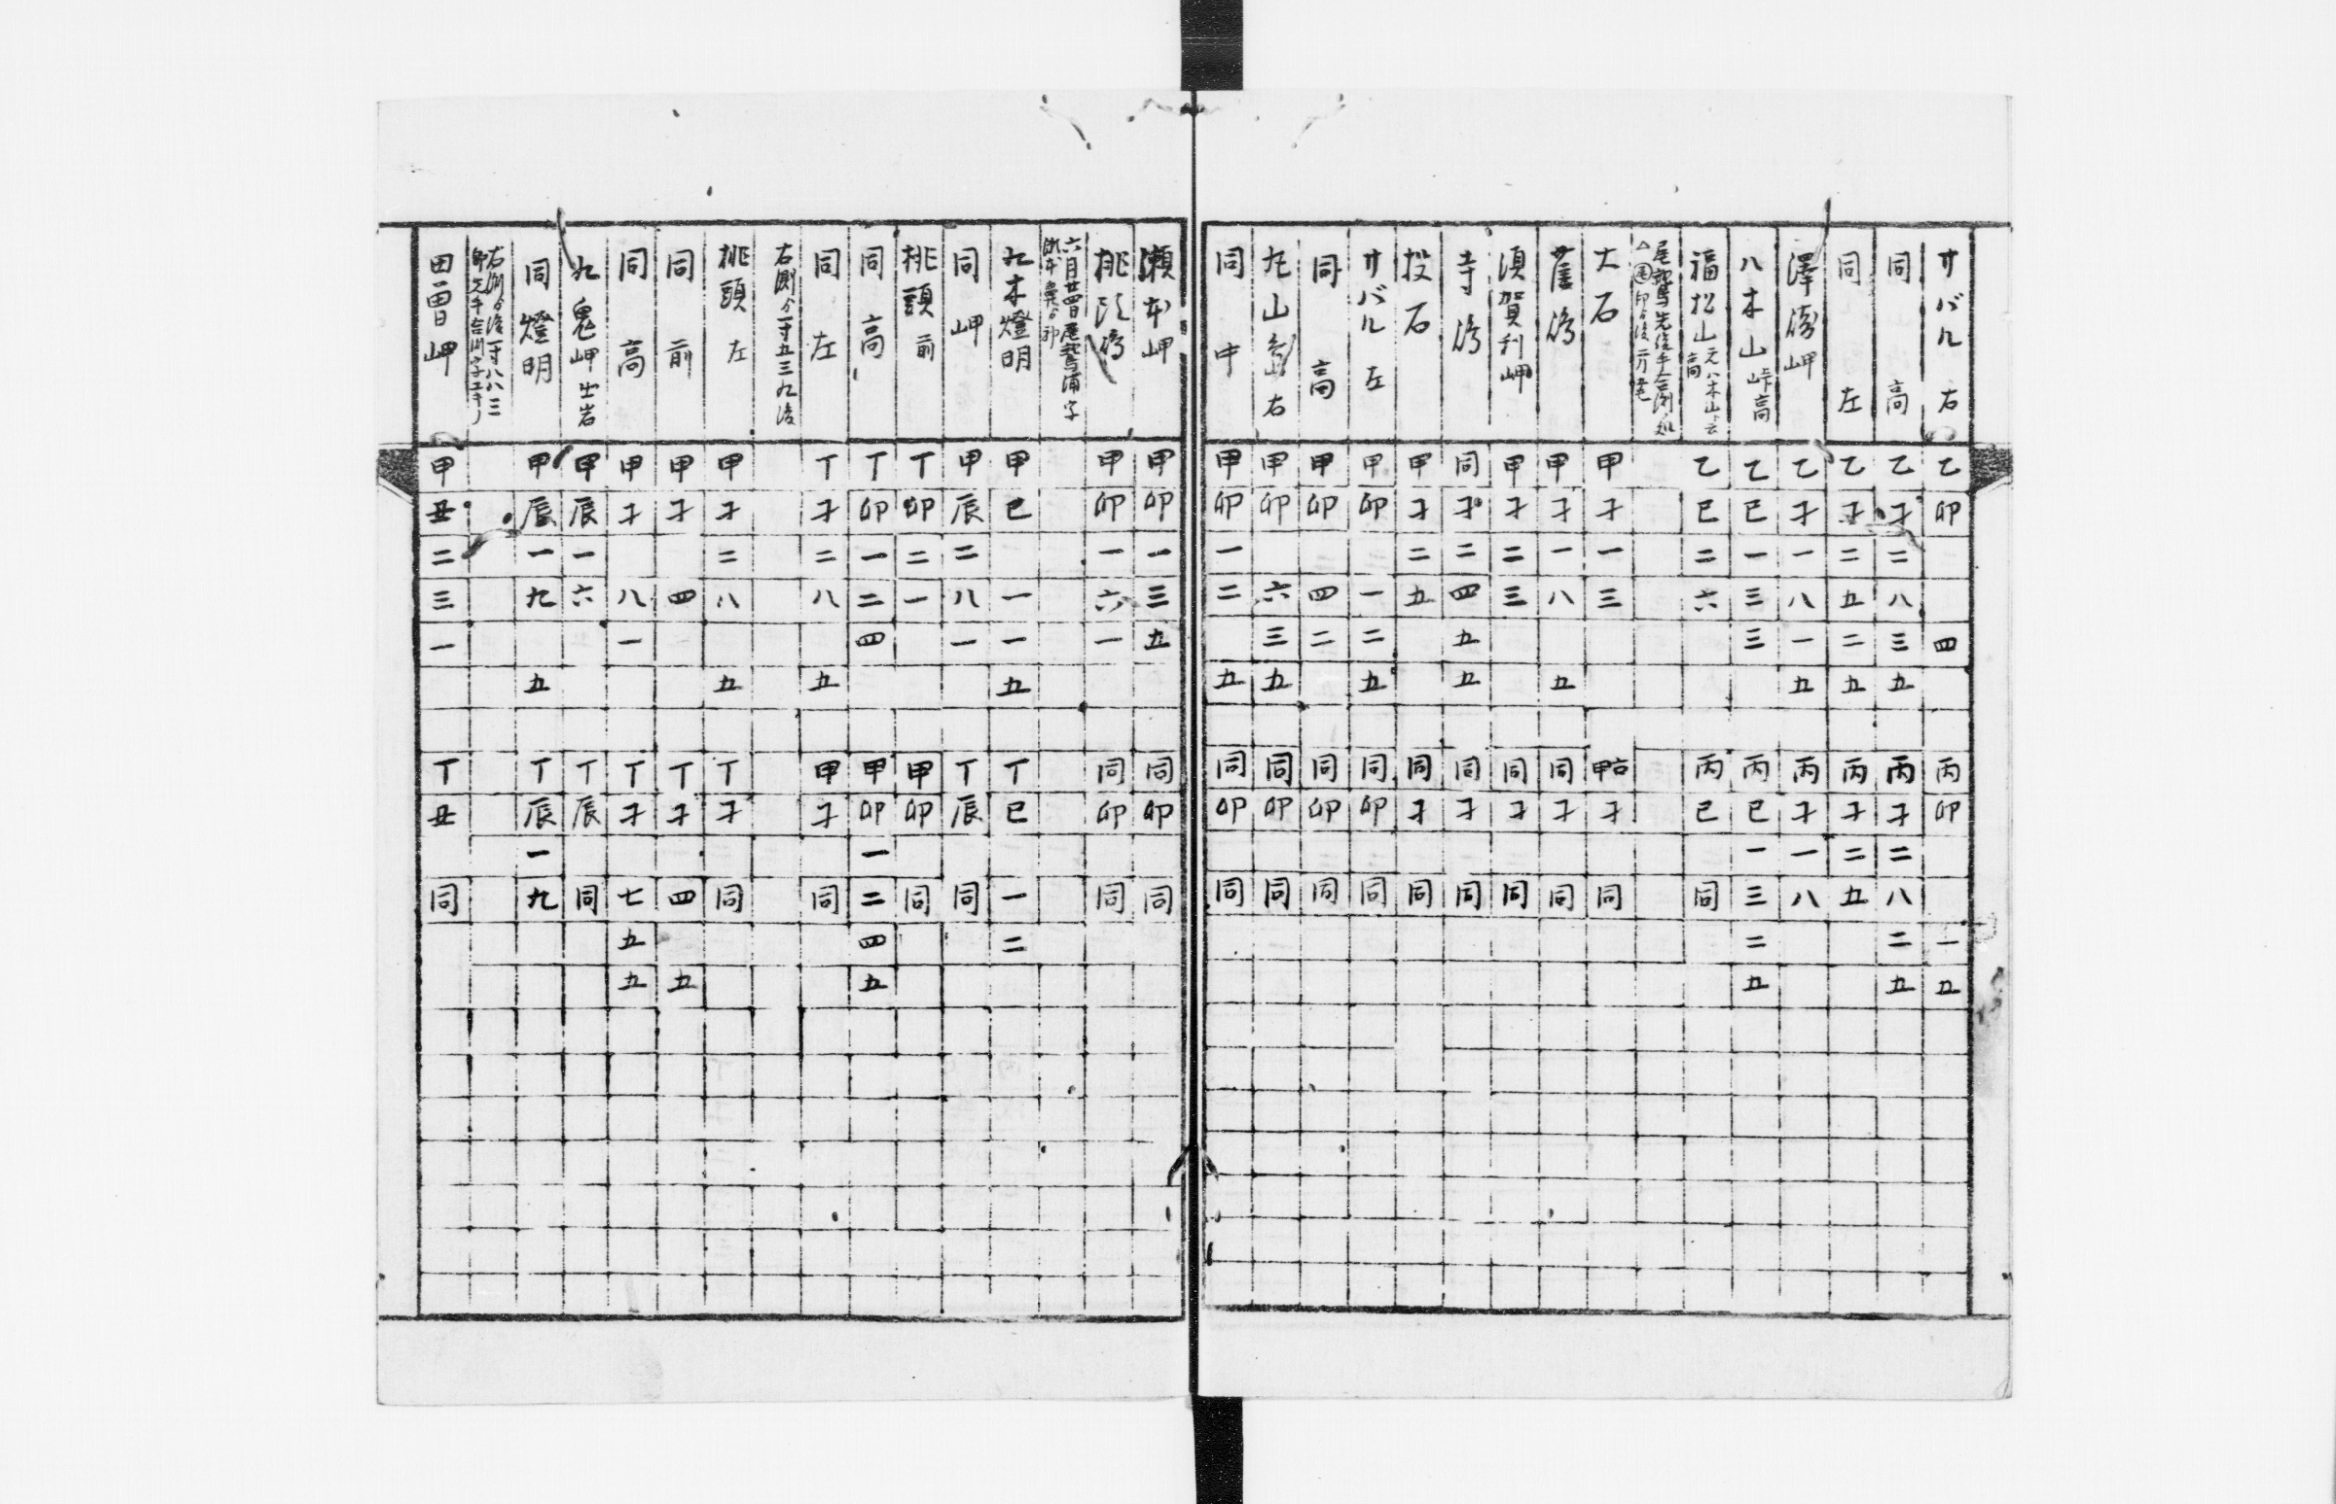 サバル 右 乙 卯 四 丙 卯 一 五
同 高 乙 子 二 八 三 五 丙 子 二 八 二 五
同 左 乙 子 二 五 二 五 丙 子 二 五
澤 岬 乙 子 一 八 一 五 丙 子 一 八
八木山 峠高 乙 巳 一 三 三 丙 巳 一 三 二 五
福松山 高 元八木山ト云 乙 巳 二 六 丙 巳 同
尾鷲先後手合測処
大石 甲 子 一 三 甲 子 同
甲 子 一 八 五 同 子 同
須賀利岬 甲 子 二 三 同 子 同
寺 同 子 二 四 五 五 同 子 同
投石 甲 子 二 五 同 子 同
サバル 左 甲 卯 一 二 五 同 卯 同
同 高 甲 卯 四 二 同 卯 同
丸山 右 甲 卯 六 三 五 同 卯 同
同 中 甲 卯 一 二 五 同 卯 同
瀬木岬 甲 卯 一 三 五 同 卯 同
桃 甲 卯 一 六 一 同 卯 同
六月廿四日尾鷲浦字
九木燈明 甲 巳 一 一 五 丁 巳 一 二
同 岬 甲 辰 二 八 一 丁 辰 同
桃頭 前 丁 卯 二 一 甲 卯 同
同 高 丁 卯 一 二 四 甲 卯 一 二 四 五
同 左 丁 子 二 八 五 甲 子 同
右測ゟ一寸五三九後
桃頭 左 甲 子 二 八 五 丁 子 同
同 前 甲 子 四 丁 子 四 五
同 高 甲 子 八 一 丁 子 七 五 五
九鬼岬 出岩 甲 辰 一 六 丁 辰 同
同 燈明 甲 辰 一 九 五 丁 辰 一 九
右測ゟ後一寸八八三
田曽岬 甲 丑 二 三 一 丁 丑 同